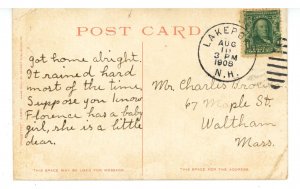 POST CARD
LAKEPORT
AUG
10
3 PM
1908
N.H.
got home alright.
It rained hard
most of the time,
Suppose you know
Florence has a baby
girl, she is a little
dear.
Mr Charles Brown
67 Maple St.
Waltham
Mass.
THIS SPACE MAY BE USED FOR MESSAGE.
THIS SPACE IS FOR THE ADDRESS.